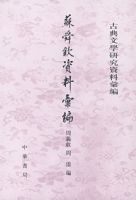 古典文學研究資料彙編
蘇舜欽資料彙編
周義敢 周雷 編
中華書局